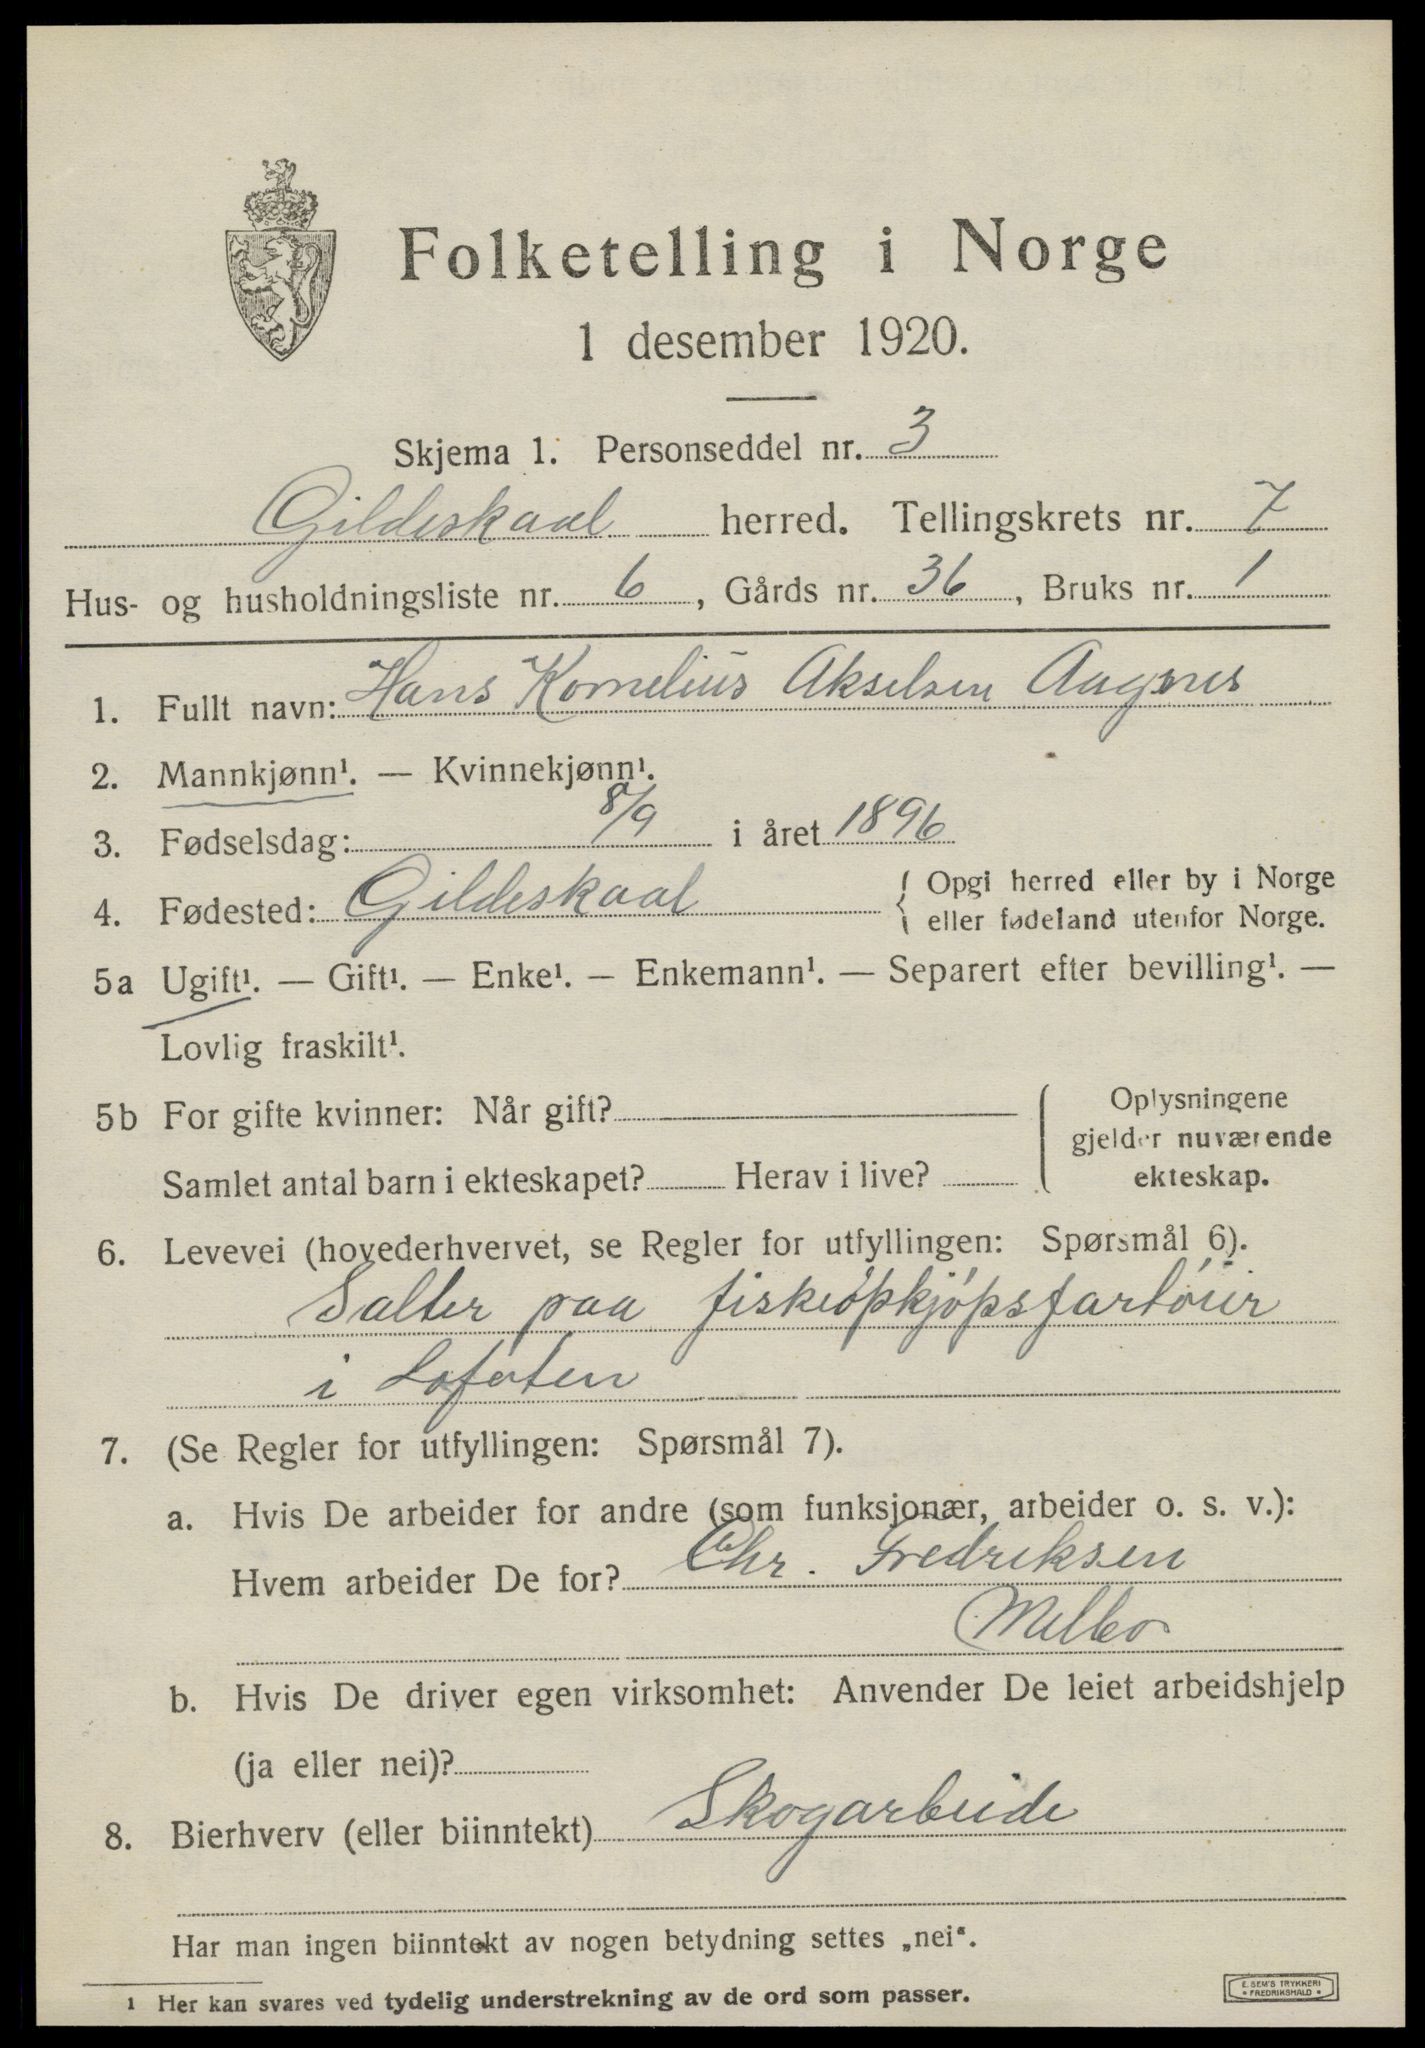 Folketelling i Norge
1 desember 1920.
Skjema 1. Personseddel nr. 3
Gildeskaal herred. Tellingskrets nr. 7
Hus- og husholdningsliste nr. 6, Gårds nr. 36, Bruks nr. 1
1. Fullt navn: Hans Kornelius Akselsen Aagsnes
2. Mannkjønn¹. — Kvinnekjønn¹.
3. Fødselsdag: 8/9 i året 1896
4. Fødested: Gildeskaal { Opgi herred eller by i Norge
eller fødeland utenfor Norge.
5a Ugift¹. — Gift¹. — Enke¹. — Enkemann¹. — Separert efter bevilling¹. —
Lovlig fraskilt¹.
5b For gifte kvinner: Når gift?
Samlet antal barn i ekteskapet? Herav i live?
Oplysningene
gjelder nuværende
ekteskap.
6. Levevei (hovederhvervet, se Regler for utfyllingen: Spørsmål 6).
Salter paa fiskeópkjópsfartóier
i Lofoten
7. (Se Regler for utfyllingen: Spørsmål 7).
a. Hvis De arbeider for andre (som funksjonær, arbeider o. s. v.):
Hvem arbeider De for? Chr. Fredriksen
Melbo
b. Hvis De driver egen virksomhet: Anvender De leiet arbeidshjelp
(ja eller nei)?
8. Bierhverv (eller biinntekt) Skogarbeide
Har man ingen biinntekt av nogen betydning settes „nei“.
1 Her kan svares ved tydelig understrekning av de ord som passer.
E. SEM'S TRYKKERI
• FREDRIKSHALD •